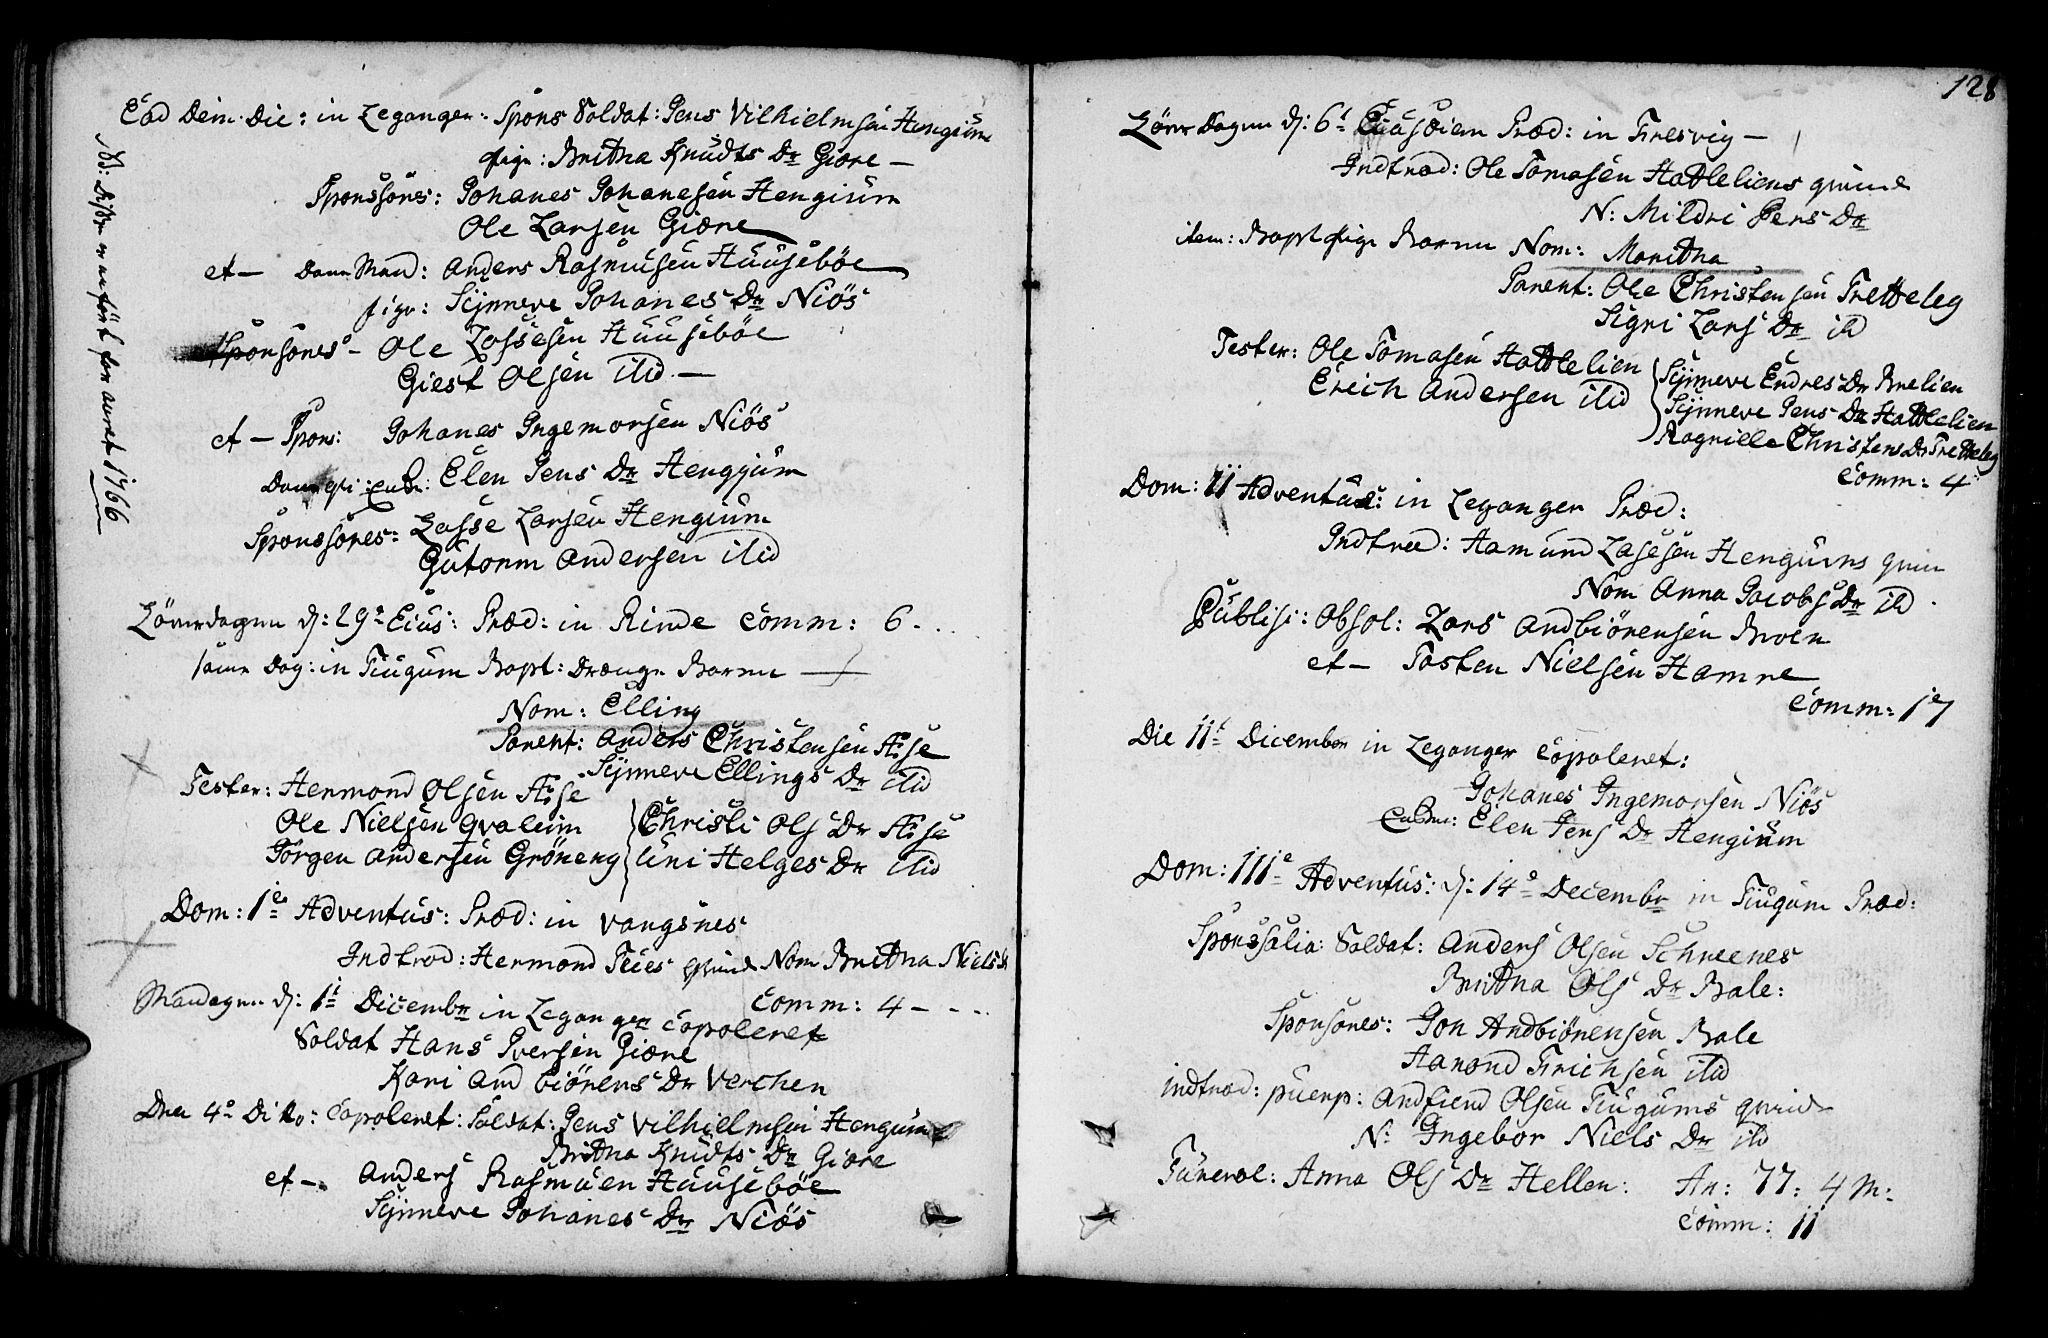 Ead Dem. Die: in Leganger. Spons Soldat: Jens Vilhielmsen Hengium
Pige: Brittna Knudts Dr Giære —
Sponssores: Johanes Johanesen Hengium
Ole Larsen Giære
et — Dane Mand: Anders Rasmusen Huusebøe
pige: Siinneve Johanes Dr Niøs
Sponsores — Ole Lassesen Huusebøe
Giest Olsen ilid. —
et — Spons: Johanes Ingemorsen Niøs
Elen Jens Dr Hengjum
Sponssores: Lasse Larsen Hengium
Gutorm Andersen ilid
NB: for aaret 1766
Løverdagen d: 29e Ejus: Præd: in Rinde Comm: 6 - . .
samme Dag: in Tiugum Bapt: Drænge Barnn —
Nom: Elling
Parent: Anders Christensen Aase
Siinneve Ellings Dr ilid
Tester: Hermond Olsen Aase
Ole Nielsen Qvaleim } Christi Ols Dr Aase
Jørgen Andersen Grøneng } Uni Helges Dr ilid
Dom: 1e Adventus: Præd: in Vangsnes
Indtræd: Hermond Feies qvinde Nom Brittna Niels Dr
Comm: 4 - - . .
Mandagen d: 1t Dicembr in Leganger Copoleret
Soldat Hans Iversen Giære
Kari Andbiørens Dr Verchen
Den 4e Ditto: Copoleret: Soldat: Jens Vilhielmsen Hengium
Brittna Knudts Dr Giære
et — Anders Rasmusen Huusebøe
Siinneve Johanes Dr Niøs
128
Løver Dagen d: 6t Præd: in Fresvig —
Indtræd: Ole Tomasen Hatteliens qvinde
N: Mildri Pers Dr
item: Bapt Pige Barnn Nom: Maritna
Parent: Ole Christensen Tretteteg
Sigri Lars Dr ild
Tester: Ole Tomasen Hattelien } Siinneve Endres Dr Brelien
Erich Andersen ilid } Siinneve Jens Dr Hattelien
Ragnille Christens Dr Tretteteg
Comm: 4
Dom: II Adventus: in Leganger Præd:
Indtred: Aamund Lasesen Hengums qvin
Nom Anna Jacobs Dr ild .
Publise: Absol: Lars Andbiørensen Broen
et — Tosten Nielsen Hamre
Comm: 17
Die 11t Dicember in Leganger Copoleret:
Johanes Ingemorsen Niøs
Elen Jens Dr Hengium
Dom: IIIe Adventus: d: 14e Decembr in Tiugum Præd:
Sponssalia: Soldat: Anders Olsen Schneenes
Brittna Ols Dr Bale:
Sponsores: Jon Andbiørensen Bale
Aamond Erichsen ilid
Indtræd: puerp: Andfiend Olsen Tiugums qvinde
N: Ingebor Niels Dr ild
Funeral: Anna Ols Dr Hellen: An: 77: 4 M:
Comm: 11